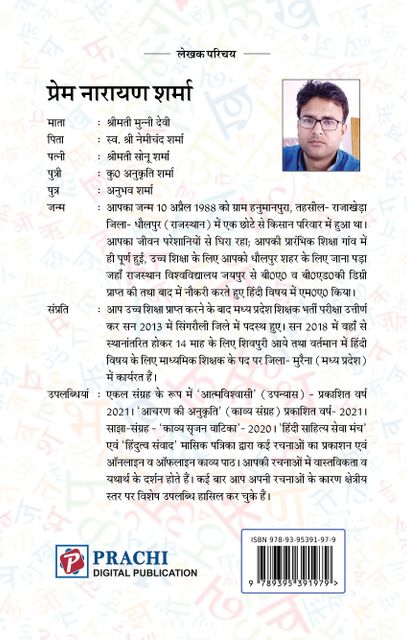 लेखक परिचय
प्रेम नारायण शर्मा
माता : श्रीमती मुन्नी देवी
पिता : स्व. श्री नेमीचंद शर्मा
पत्नी : श्रीमती सोनू शर्मा
पुत्री : कु० अनुकृति शर्मा
पुत्र : अनुभव शर्मा
जन्म : आपका जन्म 10 अप्रैल 1988 को ग्राम हनुमानपुरा, तहसील- राजाखेड़ा
जिला- धौलपुर (राजस्थान) में एक छोटे से किसान परिवार में हुआ था।
आपका जीवन परेशानियों से घिरा रहा; आपकी प्रारंभिक शिक्षा गांव में
ही पूर्ण हुई, उच्च शिक्षा के लिए आपको धौलपुर शहर के लिए जाना पड़ा
जहाँ राजस्थान विश्वविद्यालय जयपुर से बी०ए० व बी०एड०की डिग्री
प्राप्त की तथा बाद में नौकरी करते हुए हिंदी विषय में एम०ए० किया।
संप्रति : आप उच्च शिक्षा प्राप्त करने के बाद मध्य प्रदेश शिक्षक भर्ती परीक्षा उत्तीर्ण
कर सन 2013 में सिंगरौली जिले में पदस्थ हुए। सन 2018 में वहाँ से
स्थानांतरित होकर 14 माह के लिए शिवपुरी आये तथा वर्तमान में हिंदी
विषय के लिए माध्यमिक शिक्षक के पद पर जिला- मुरैना (मध्य प्रदेश)
में कार्यरत हैं।
उपलब्धियां : एकल संग्रह के रूप में 'आत्मविश्वासी' (उपन्यास) - प्रकाशित वर्ष
2021। 'आचरण की अनुकृति' (काव्य संग्रह) प्रकाशित वर्ष- 2021।
साझा-संग्रह - 'काव्य सृजन वाटिका'- 2020। 'हिंदी साहित्य सेवा मंच'
एवं 'हिंदुत्व संवाद' मासिक पत्रिका द्वारा कई रचनाओं का प्रकाशन एवं
ऑनलाइन व ऑफलाइन काव्य पाठ। आपकी रचनाओं में वास्तविकता व
यथार्थ के दर्शन होते हैं। कई बार आप अपनी रचनाओं के कारण क्षेत्रीय
स्तर पर विशेष उपलब्धि हासिल कर चुके हैं।
ISBN 978-93-95391-97-9
9 789395 391979 >
PRACHI
DIGITAL PUBLICATION